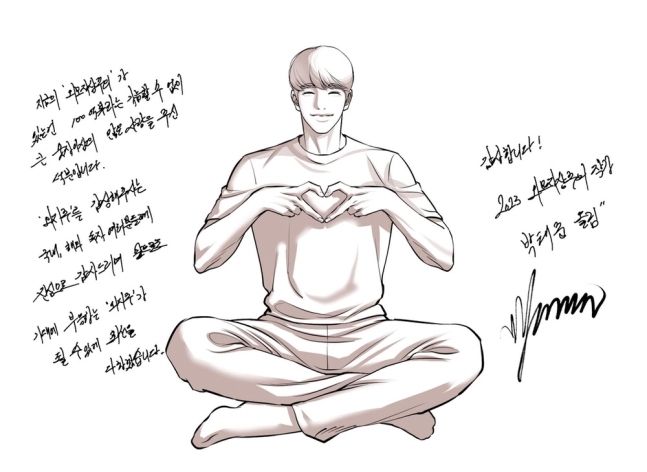 지금의 '외모지상주의'가
있는건 100억뷰라는 가늠할 수 없이
큰 숫자만큼의 많은 사랑을 주신
덕분입니다.
'외지주'를 감상해주시는
국내, 해외 독자 여러분들에게
진심으로 감사드리며 앞으로도
기대에 부응하는 '외지주'가
될 수 있게 최선을
다하겠습니다.
감사합니다!
2023 외모지상주의 작가
박태준 올림"